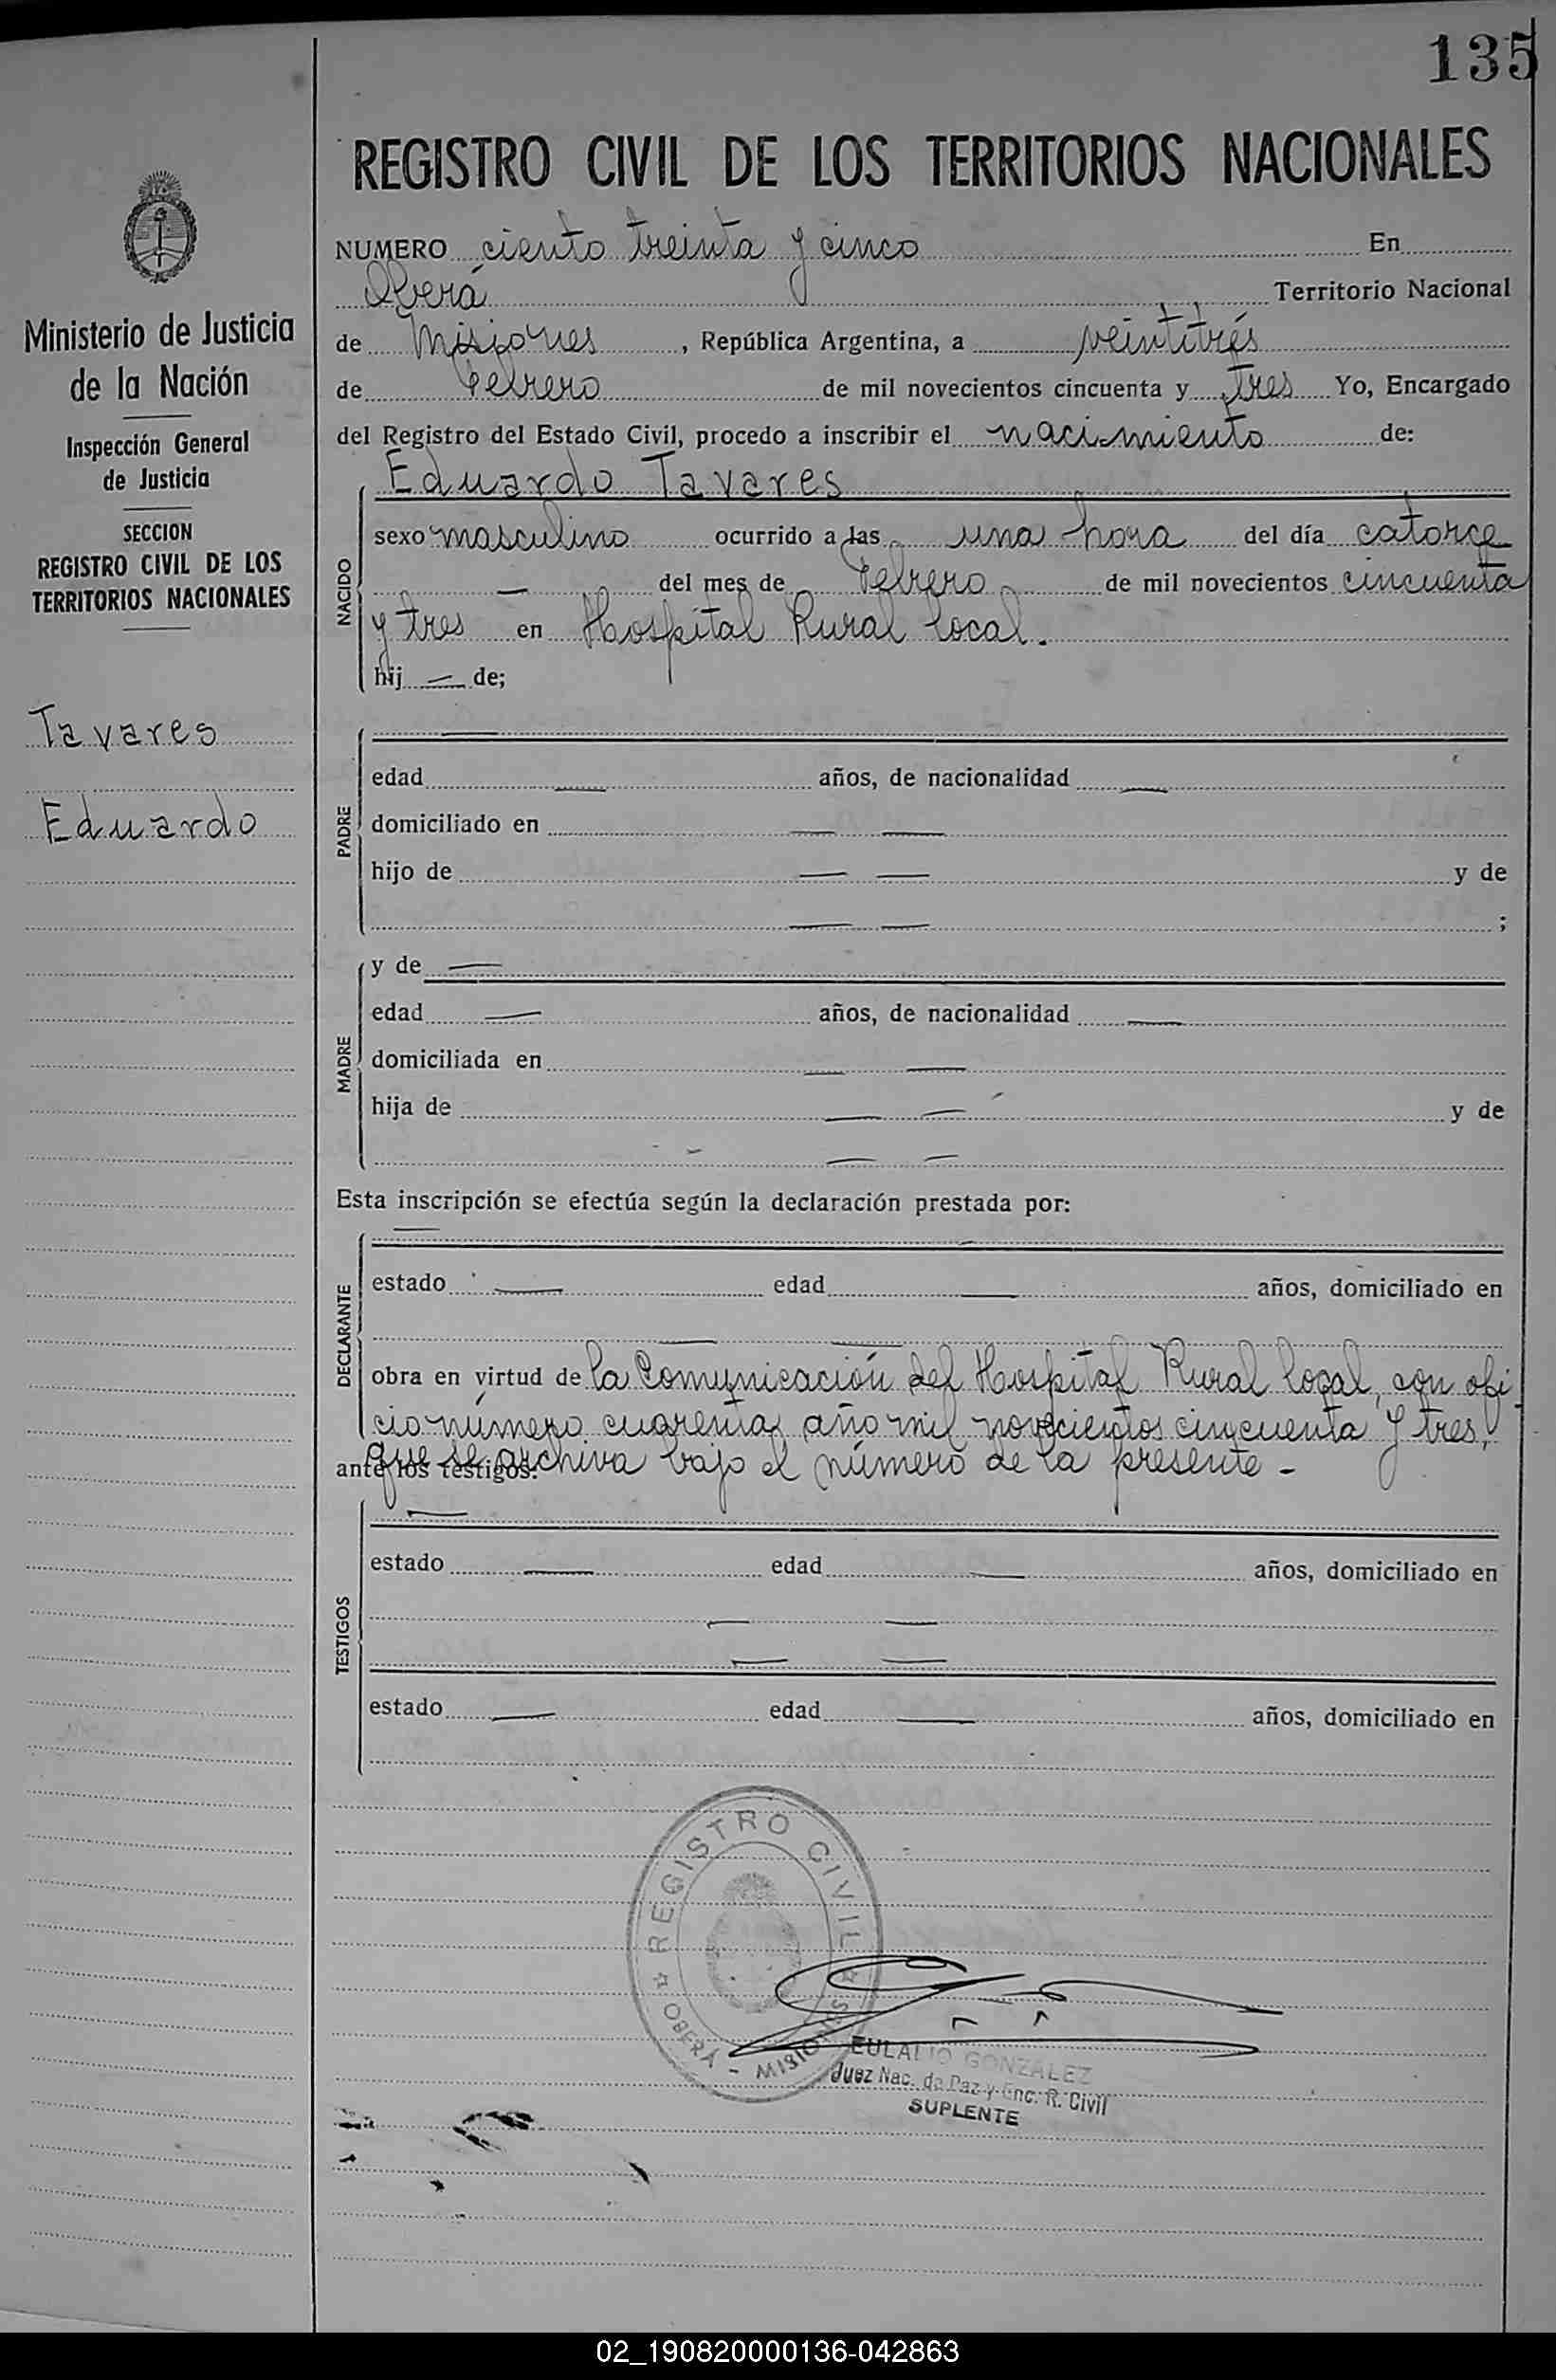 135
REGISTRO CIVIL DE LOS TERRITORIOS NACIONALES
Ministerio de Justicia
de la Nación
Inspección General
de Justicia
SECCION
REGISTRO CIVIL DE LOS
TERRITORIOS NACIONALES
Tavares
Eduardo
NUMERO ciento treinta y cinco En
Oberá Territorio Nacional
de Misiones, República Argentina, a veintitrés
de Febrero de mil novecientos cincuenta y tres Yo, Encargado
del Registro del Estado Civil, procedo a inscribir el nacimiento de:
Eduardo Tavares
NACIDO
sexo masculino ocurrido a las una hora del día catorce
— del mes de Febrero de mil novecientos cincuenta
y tres en Hospital Rural local.
hij — de;
PADRE
—
edad — años, de nacionalidad —
domiciliado en — —
hijo de — — y de
— — ;
MADRE
y de —
edad — años, de nacionalidad —
domiciliada en — —
hija de — — y de
— —
Esta inscripción se efectúa según la declaración prestada por:
DECLARANTE
—
estado — edad — años, domiciliado en
— —
obra en virtud de la Comunicación del Hospital Rural local, con ofi-
cio número cuarenta, año mil novecientos cincuenta y tres,
que se archiva bajo el número de la presente -
ante los testigos:
TESTIGOS
—
estado — edad — años, domiciliado en
— —
— —
estado — edad — años, domiciliado en
REGISTRO CIVIL
OBERA - MISIONES
EULALIO GONZALEZ
Juez Nac. de Paz y Enc. R. Civil
SUPLENTE
02_190820000136-042863